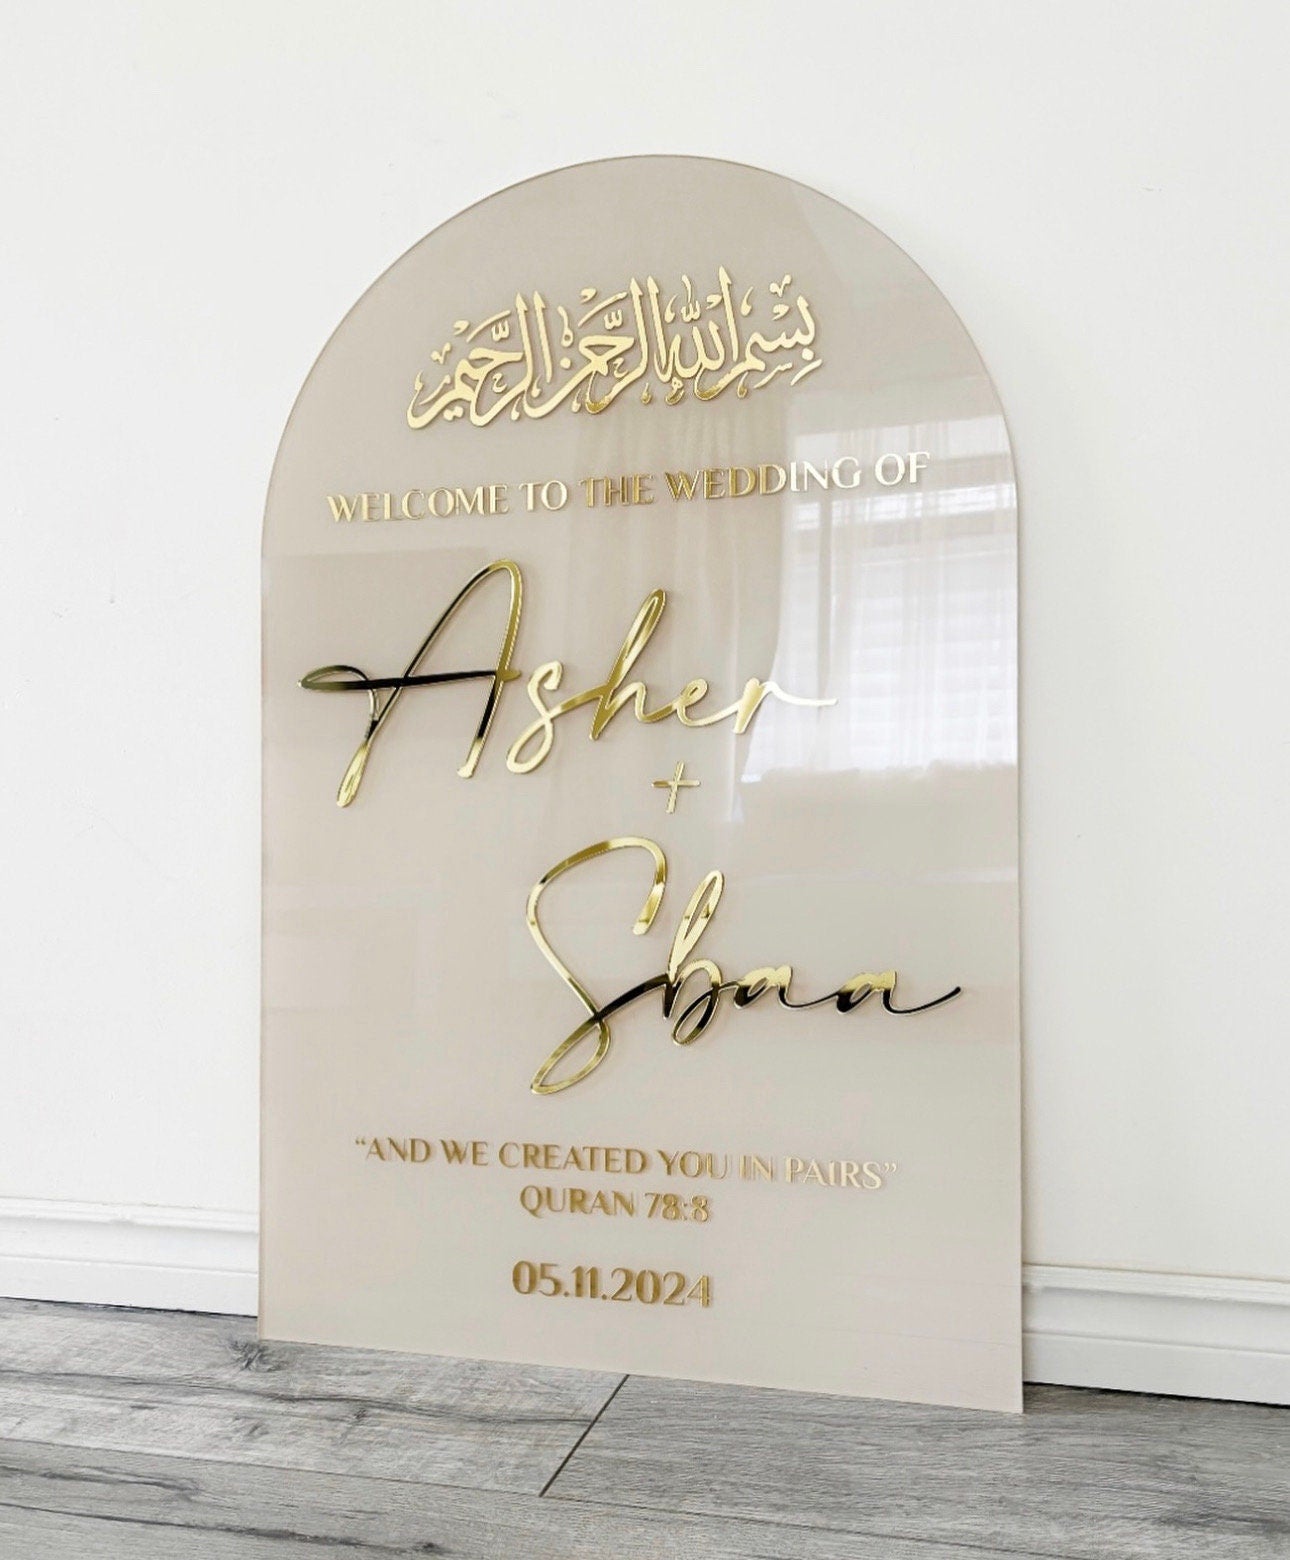 بسم الله الرحمن الرحيم
WELCOME TO THE WEDDING OF
Asher
+
Sbaa
“AND WE CREATED YOU IN PAIRS”
QURAN 78:8
05.11.2024